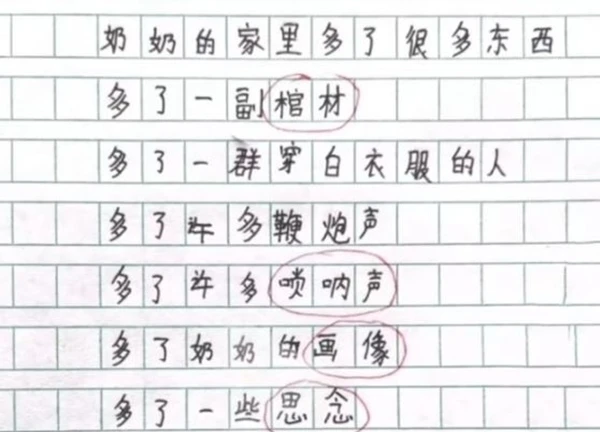 奶奶的家里多了很多东西
多了一副棺材
多了一群穿白衣服的人
多了许多鞭炮声
多了许多唢呐声
多了奶奶的画像
多了一些思念